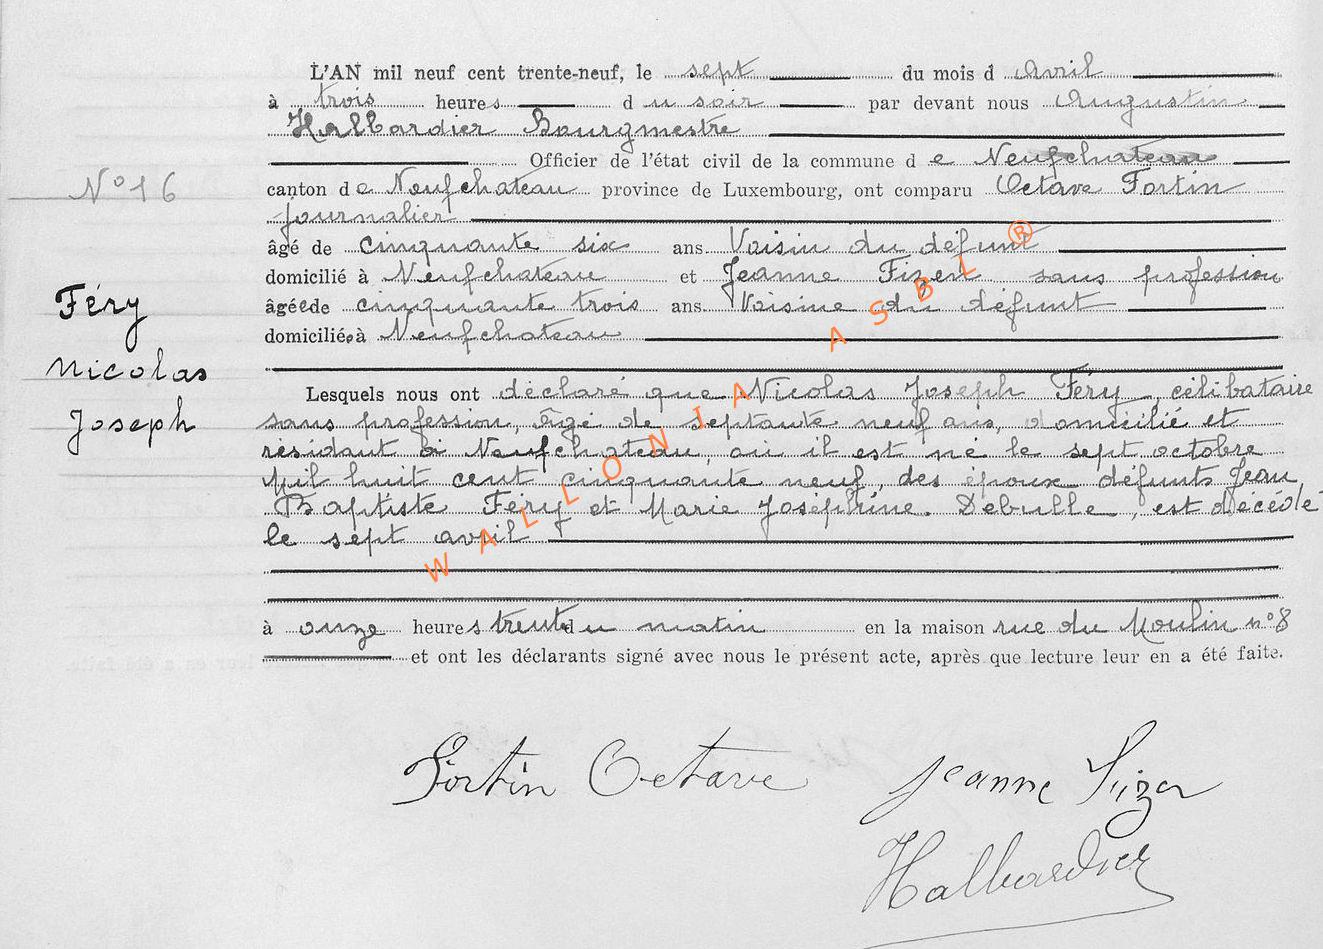 L'AN mil neuf cent trente-neuf, le sept du mois d Avril
à trois heures du soir par devant nous Augustin
Halbardier Bourgmestre
Officier de l'état civil de la commune de Neufchateau
N° 16
canton de Neufchateau province de Luxembourg, ont comparu Octave Fortin
journalier
âgé de cinquante six ans Voisin du défunt
domicilié à Neufchateau et Jeanne sans profession
âgée de cinquante trois ans Voisine du défunt
domiciliée à Neufchateau
Féry
Nicolas
Joseph
Lesquels nous ont déclaré que Nicolas Joseph Féry, célibataire
sans profession, âgé de septante neuf ans, domicilié et
résidant à Neufchateau, où il est né le sept octobre
Mil huit cent cinquante neuf, des époux défunts Jean
Baptiste Féry et Marie Joséphine Debulle, est décédé
le sept avril
à onze heures trente du matin en la maison rue du Moulin n° 8
et ont les déclarants signé avec nous le présent acte, après que lecture leur en a été faite.
WALLONIA ASBL ®
Fortin Octave Jeanne
Halbardier